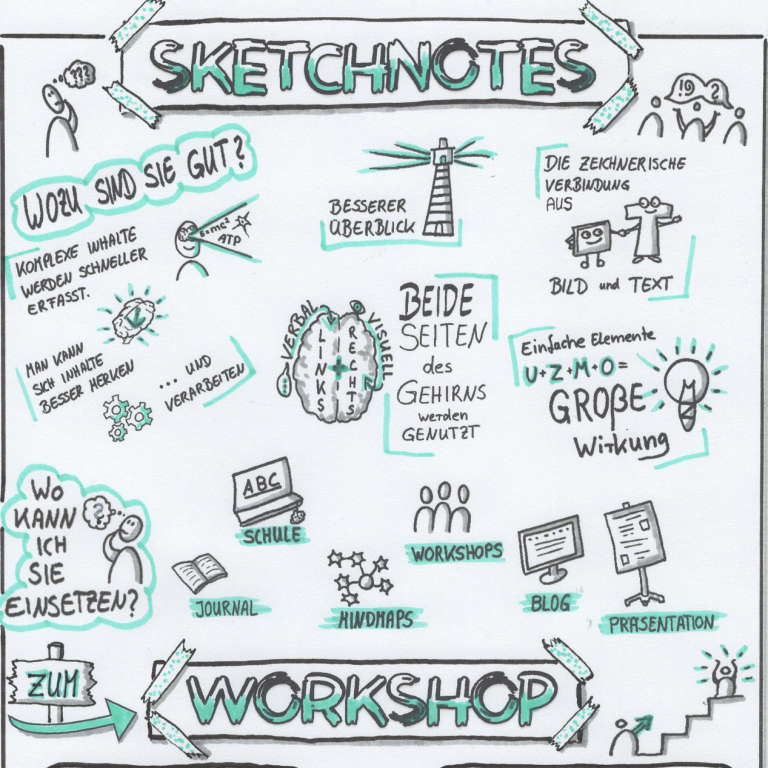 SKETCHNOTES
???
!?
?
WOZU SIND SIE GUT?
KOMPLEXE INHALTE
WERDEN SCHNELLER
ERFASST.
E=mc²
ATP
MAN KANN
SICH INHALTE
BESSER MERKEN
... UND
VERARBEITEN
BESSERER
ÜBERBLICK
DIE ZEICHNERISCHE
VERBINDUNG
AUS
T
BILD und TEXT
VERBAL
VISUELL
LINKS
RECHTS
BEIDE
SEITEN
des
GEHIRNS
werden
GENUTZT
Einfache Elemente
U+Z+M+O=
GROßE
Wirkung
WO
KANN
ICH
SIE
EINSETZEN?
?
ABC
SCHULE
JOURNAL
MINDMAPS
WORKSHOPS
BLOG
PRÄSENTATION
ZUM
WORKSHOP